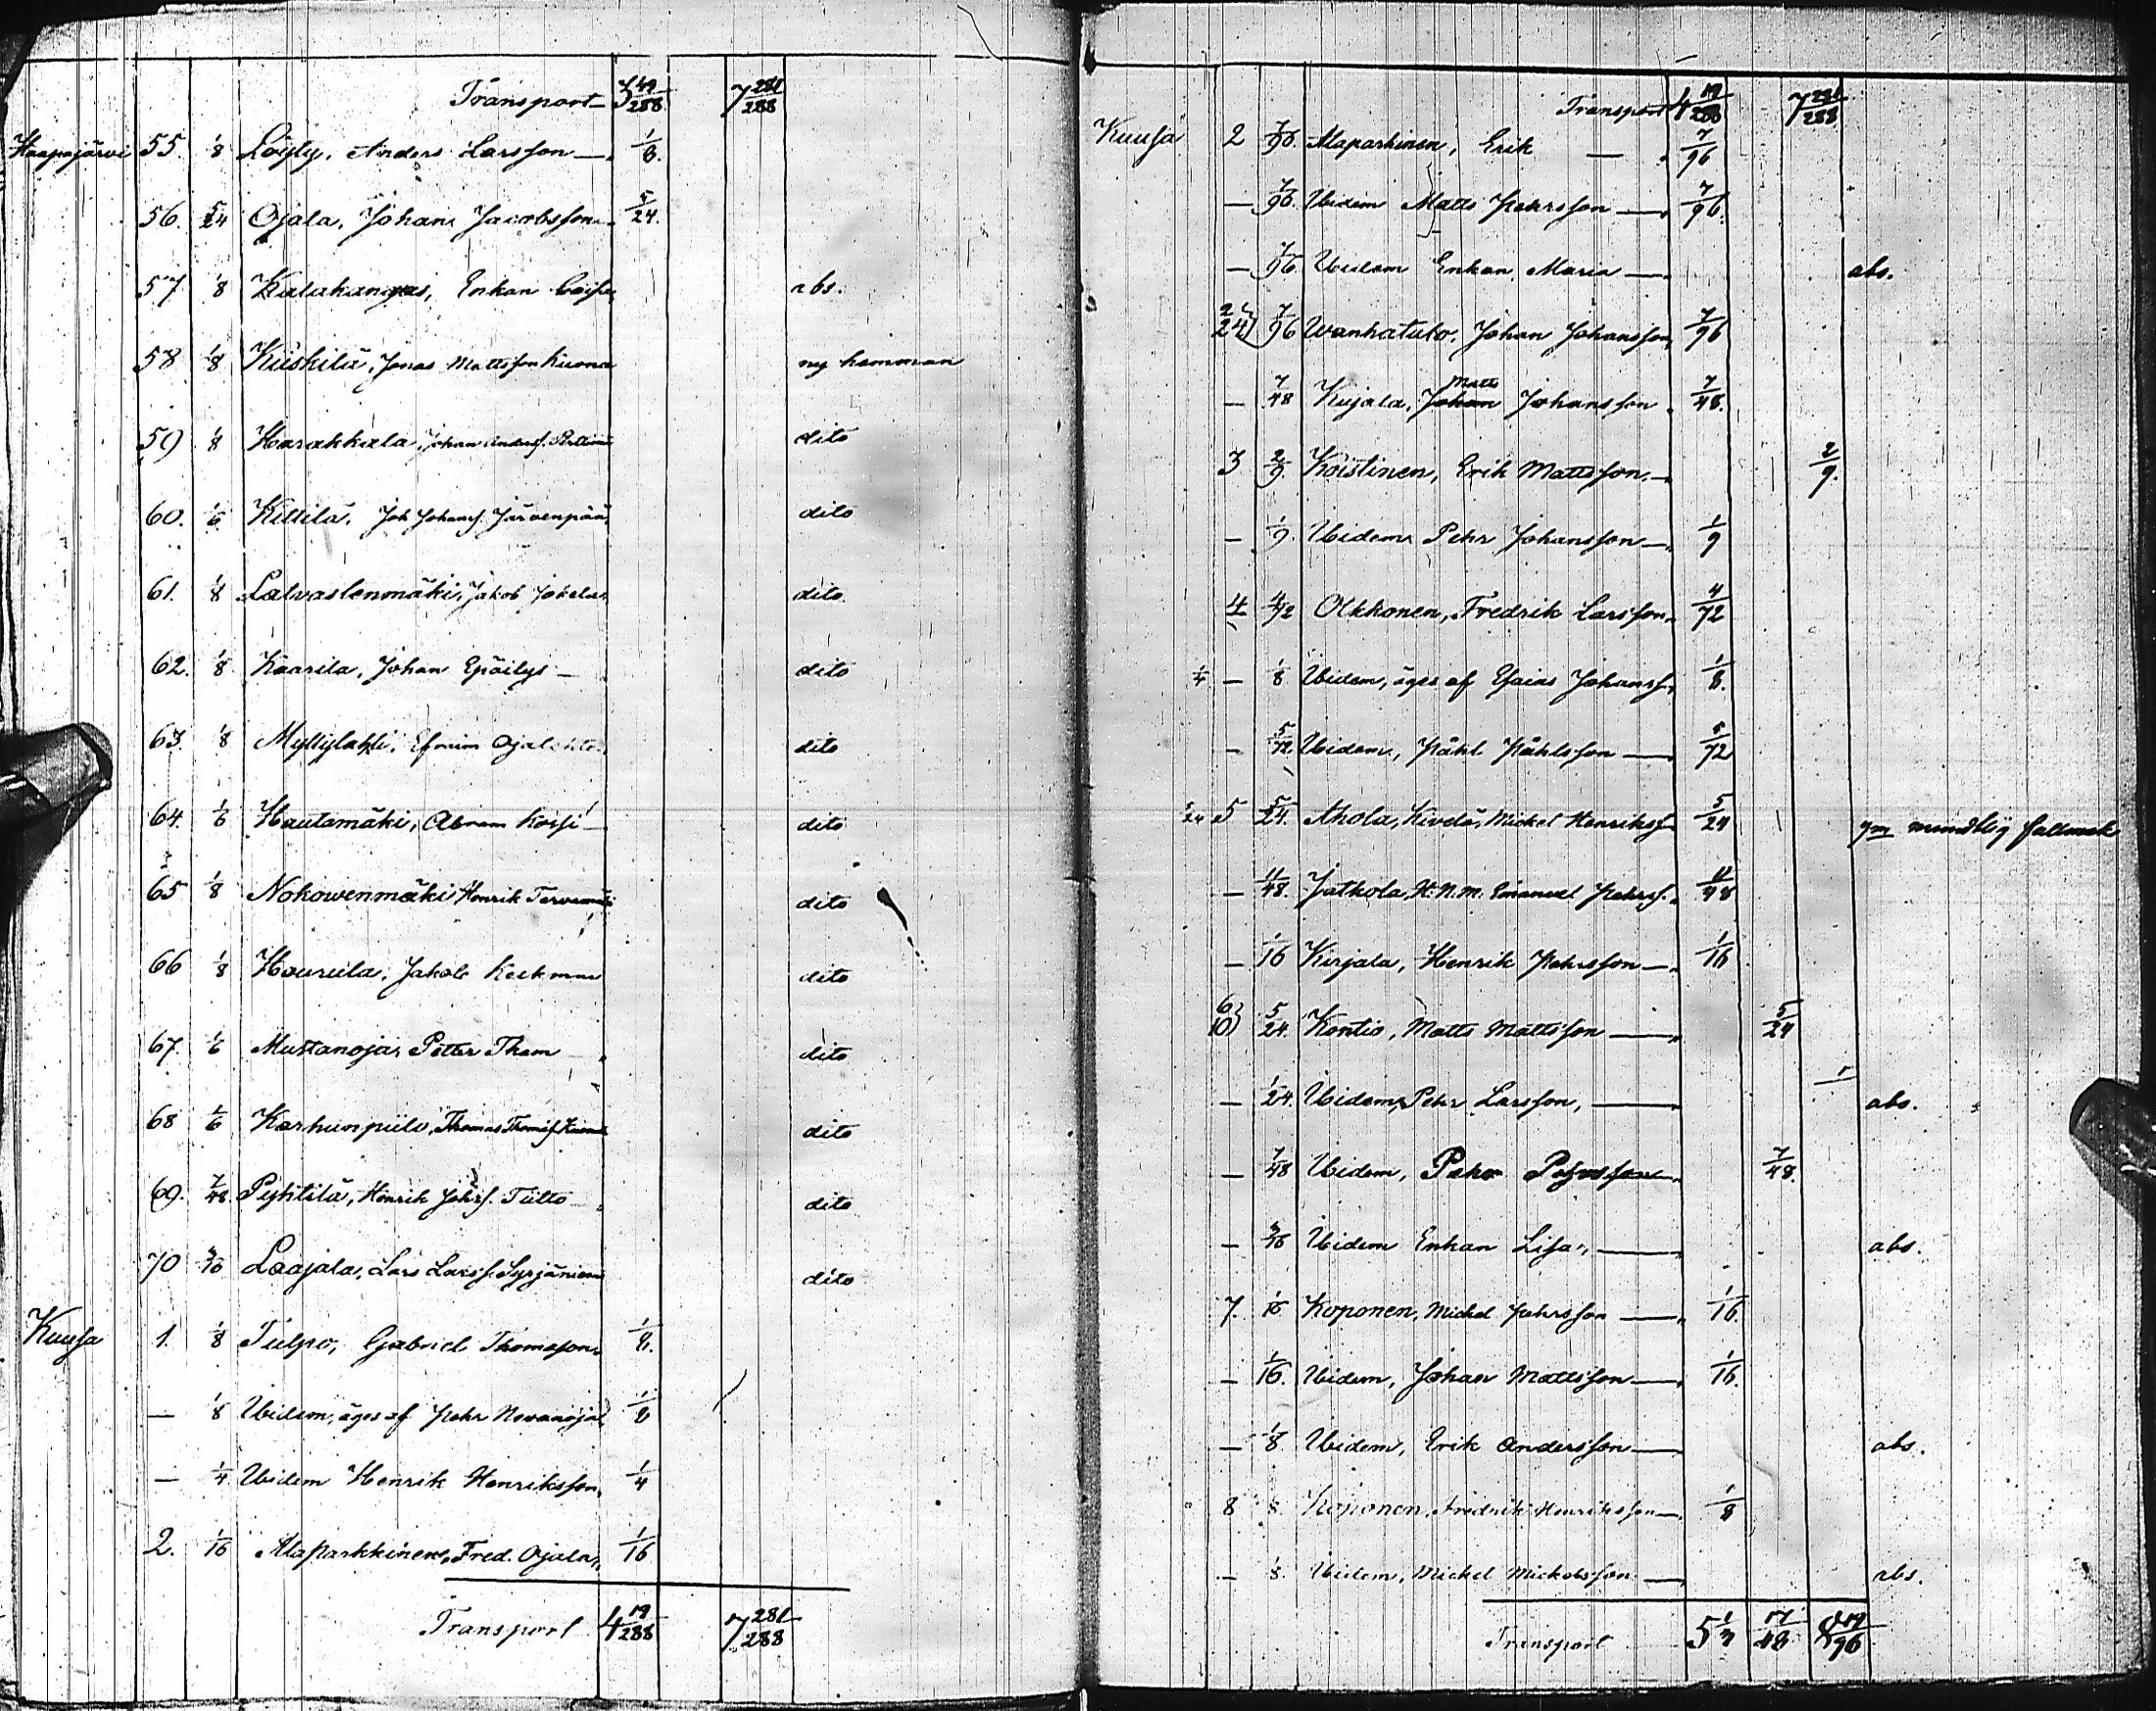 Transport 7 281/288
Haapajärvi 55. 1/8 Löyty, Anders Larsson 1/8.
56. 5/24 Ojala, Johan Jacobsson 5/24.
57 1/8 Kalakangas, Enkan abs.
58 1/8 Kiiskilä, Jonas Mattsson Kuona ny hemman
59 1/8 Harakkala, Johan Anderss. dito
60. 1/6 Kittilä, Joh Johanss. Järvenpää dito
61. 1/8 Jakob dito
62. 1/8 Kaarila, Johan Epäilys dito
63. 1/8 Myllylahti, Efraim dito
64. 1/6 Hautamäki, Abram dito
65 1/8 Nokowenmäki Henrik dito
66 1/8 Hourula, Jakob dito
67. 1/6 Mustanoja, Petter Tham dito
68 1/6 Thomas Thomass. dito
69. 7/48. Pyhtilä, Henrik Johss. Tiitto dito
70 Laajala, Lars Larss. Syrjäniemi dito
Kuusa 1. 1/8 Tulpo, Gabriel Thomasson 1/8.
— 1/8 Ibidem, äges af Pehr Nevanoja 1/8
— 1/4 Ibidem Henrik Henriksson 1/4
2. 1/16 Alaparkkinen, Fred. Ojala 1/16
Transport 4 19/288 7 281/288
Transport 4 19/288 7 281/288
Kuusa 2 7/96. Alaparkinen, Erik — 7/96
— 7/96. Ibidem Matts Pehrsson — 7/96.
— 7/96 Ibidem Enkan Maria — abs.
2 24 7/96 Wanhatalo, Johan Johansson 7/96
— 7/48 Kujala, Matts Johansson 7/48.
3 2/9. Koistinen, Erik Mattsson — 2/9.
— 1/9. Ibidem Pehr Johansson — 1/9
4 4/72 Olkkonen, Fredrik Larsson 4/72
1/4 — 1/8 Ibidem, äges af Esaias Johanss. 1/8.
— 5/72. Ibidem, Påhl Påhlsson — 5/72
5/24 5 5/24. Ahola, Kivelä, Mickel Henriksson 5/24 gm mundtlig fullmakt
— 11/48. Jatkola, H. N. M. Emanuel Pehrss. 11/48
— 1/16 Kirjala, Henrik Pehrsson — 1/16
6 10 5/24. Kontio, Matts Mattsson — 5/24
— 1/24. Ibidem, Pehr Larsson, — abs.
— 7/48 Ibidem, Pehr Pehrsson 7/48.
— Ibidem Enkan Lisa, — abs.
7. 1/16 Koponen, Mickel Pehrsson — 1/16.
— 1/16. Ibidem, Johan Mattsson — 1/16.
— 1/8 Ibidem, Erik Andersson — abs.
8 1/8 Koponen, Fredrik Henriksson — 1/8
— 1/8. Ibidem, Mickel Mickelsson — abs.
Transport